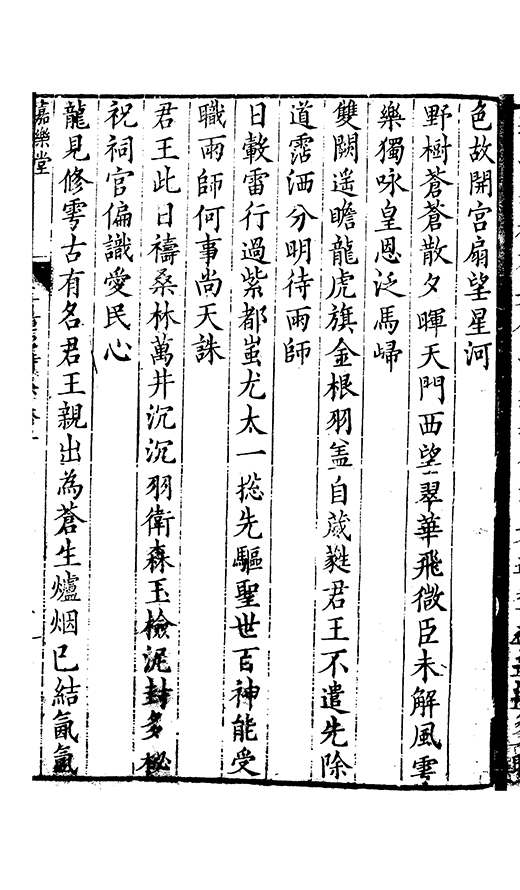 色故開宫扇望星河
野樹蒼蒼散夕暉天門西望翠華飛微臣未解風雲
樂獨咏皇恩泛馬歸
雙闕遥瞻龍虎旗金根羽盖自葳蕤君王不遣先除
道霑洒分明待雨師
日轂雷行過紫都蚩尤太一總先驅聖世百神能受
職雨師何事尚天誅
君王此日禱桑林萬井沉沉羽衛森玉檢泥封多秘
祝祠官偏識愛民心
龍見修雩古有名君王親出為蒼生爐烟已結氤氳
嘉樂堂